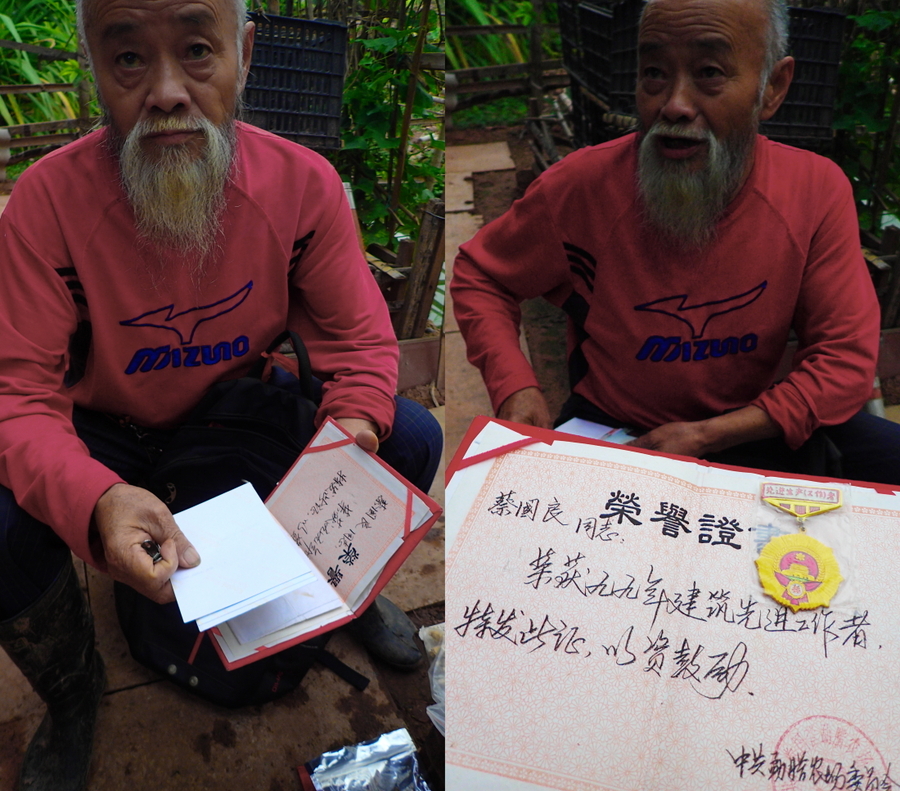 MIZUNO
榮譽
蔡國良同志:
MIZUNO
先进生产(工作)者
榮譽證
蔡國良同志:
荣获九九年建筑先进工作者.
特发此证,以资鼓励.
中共勐腊农场委员会